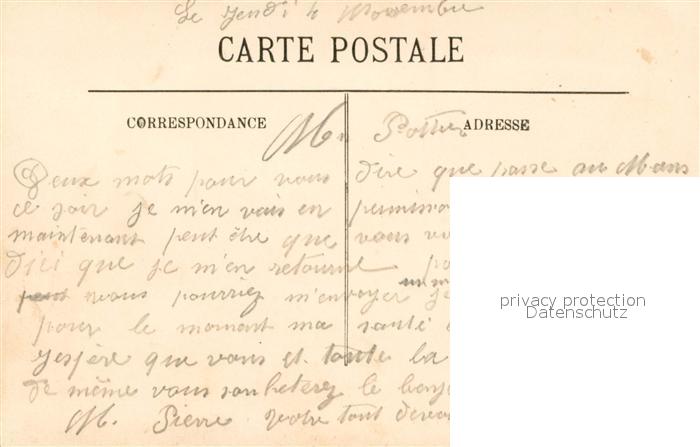 Le Jeudi 4 Novembre
CARTE POSTALE
CORRESPONDANCE
ADRESSE
Mr Pottier
Deux mots pour vous dire que passe au Mans
ce soir je m'en vais en permission
maintenant peut être que vous
d'ici que je m'en retourne
vous pourriez m'envoyer
pour le momant ma santé
J'espère que vous et toute la
de même vous souheterez le
M. Pierre votre tout
privacy protection
Datenschutz